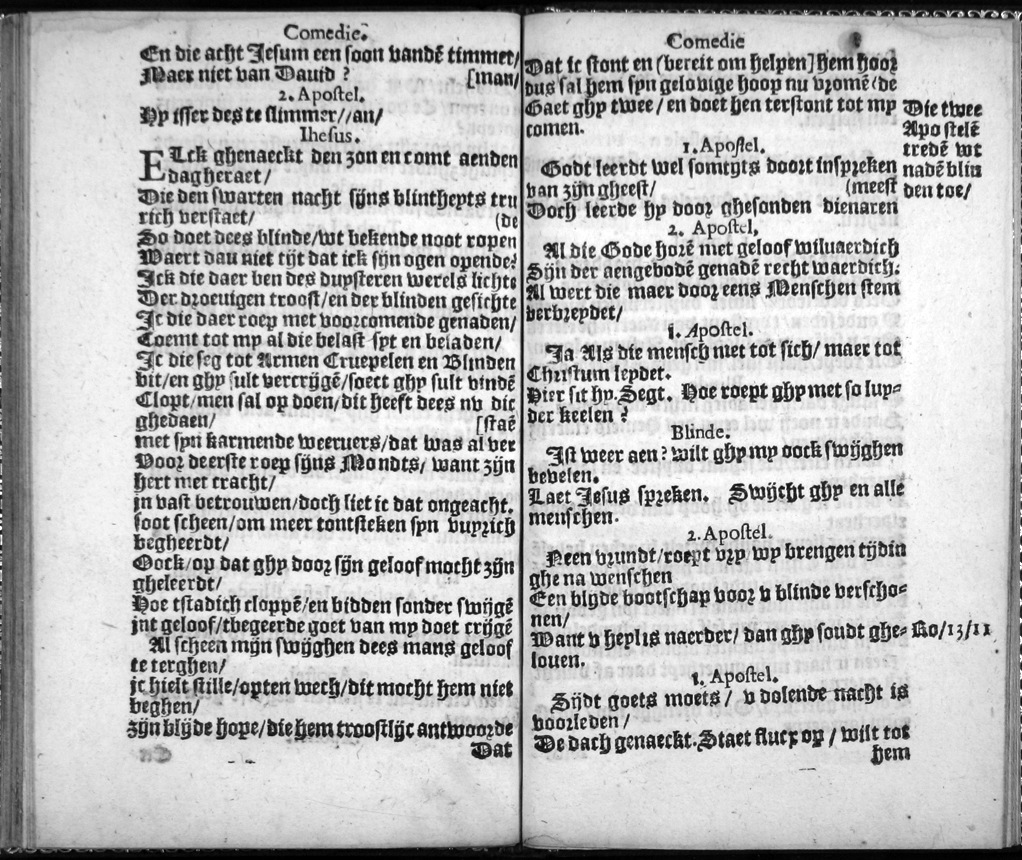 Comedie.
En die acht Jesum een soon vandē timmer/
Maer niet van Dauid ? [man/
2. Apostel.
Hy isser des te slimmer//an/
Ihesus.
ELck ghenaeckt den zon en comt aenden
dagheraet/
Die den swarten nacht sijns blintheyts tru
rich verstaet/ (de
So doet dees blinde/wt bekende noot ropen
Waert dau niet tijt dat ick sijn ogen opende?
Ick die daer ben des duysteren werels lichte
Der droeuigen troost/en der blinden gesichte
Ic die daer roep met voorcomende genaden/
Coemt tot my al die belast syt en beladen/
Ic die seg tot Armen Cruepelen en Blinden
bit/en ghy sult vercrijgē/soect ghy sult vindē
Clopt/men sal op doen/dit heeft dees nv dic
ghedaen/ [staē
met syn karmende weeruers/dat was al ver
Voor deerste roep sijns Mondts/ want zijn
hert met cracht/
in vast betrouwen/doch liet ic dat ongeacht.
soot scheen/om meer tontsteken syn vuyrich
begheerdt/
Oock/op dat ghy door sijn geloof mocht zijn
gheleerdt/
Hoe tstadich cloppē/en bidden sonder swijgē
int geloof/tbegeerde goet van my doet crijgē
Al scheen mijn swijghen dees mans geloof
te terghen/
ic hielt stille/opten wech/dit mocht hem niet
beghen/
zijn blijde hope/die hem troostlijc antwoorde
Dat
Comedie
Dat ic stont en (bereit om helpen] hem hoor
dus sal hem syn gelovige hoop nu vromē (de
Gaet ghy twee/ en doet hen terstont tot my
comen.
Die twee
Apostelē
tredē wt
nadē blin
den toe/
1. Apostel.
Godt leerdt wel somtyts doort inspreken
van zijn gheest/ (meest
Doch leerde hy door ghesonden dienaren
2. Apostel,
Al die Gode horē met geloof wiluaerdich
Sijn der aengebodē genadē recht waerdich.
Al wert die maer door eens Menschen stem
verbreydet/
1. Apostel.
Ja Als die mensch niet tot sich/ maer tot
Christum leydet.
Hier sit hy. Segt. Hoe roept ghy met so luy-
der keelen ?
Blinde.
Ist weer aen? wilt ghy my oock swijghen
bevelen.
Laet Jesus spreken. Swijcht ghy en alle
menschen.
2. Apostel.
Neen vrundt/roept vry wy brengen tijdin
ghe na wenschen
Een blyde bootschap voor v blinde verscho-
nen/
Want v heyl is naerder/ dan ghy soudt ghe- Ro/13/11
louen.
1. Apostel.
Sijdt goets moets / v dolende nacht is
voorleden /
De dach genaeckt. Staet flucx op / wilt tot
hem